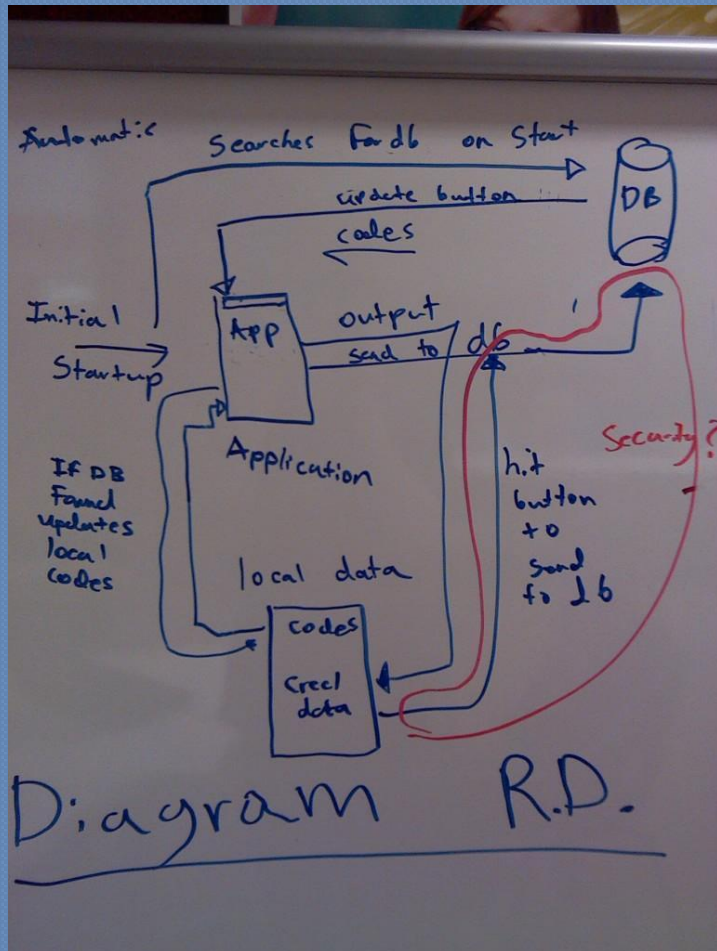 Automatic
Searches For db on Start
update button
codes
DB
Initial
Startup
App
output
send to db
Application
Security?
If DB
Found
updates
local
codes
hit
button
to
send
to db
local data
codes
Creel
data
Diagram R.D.